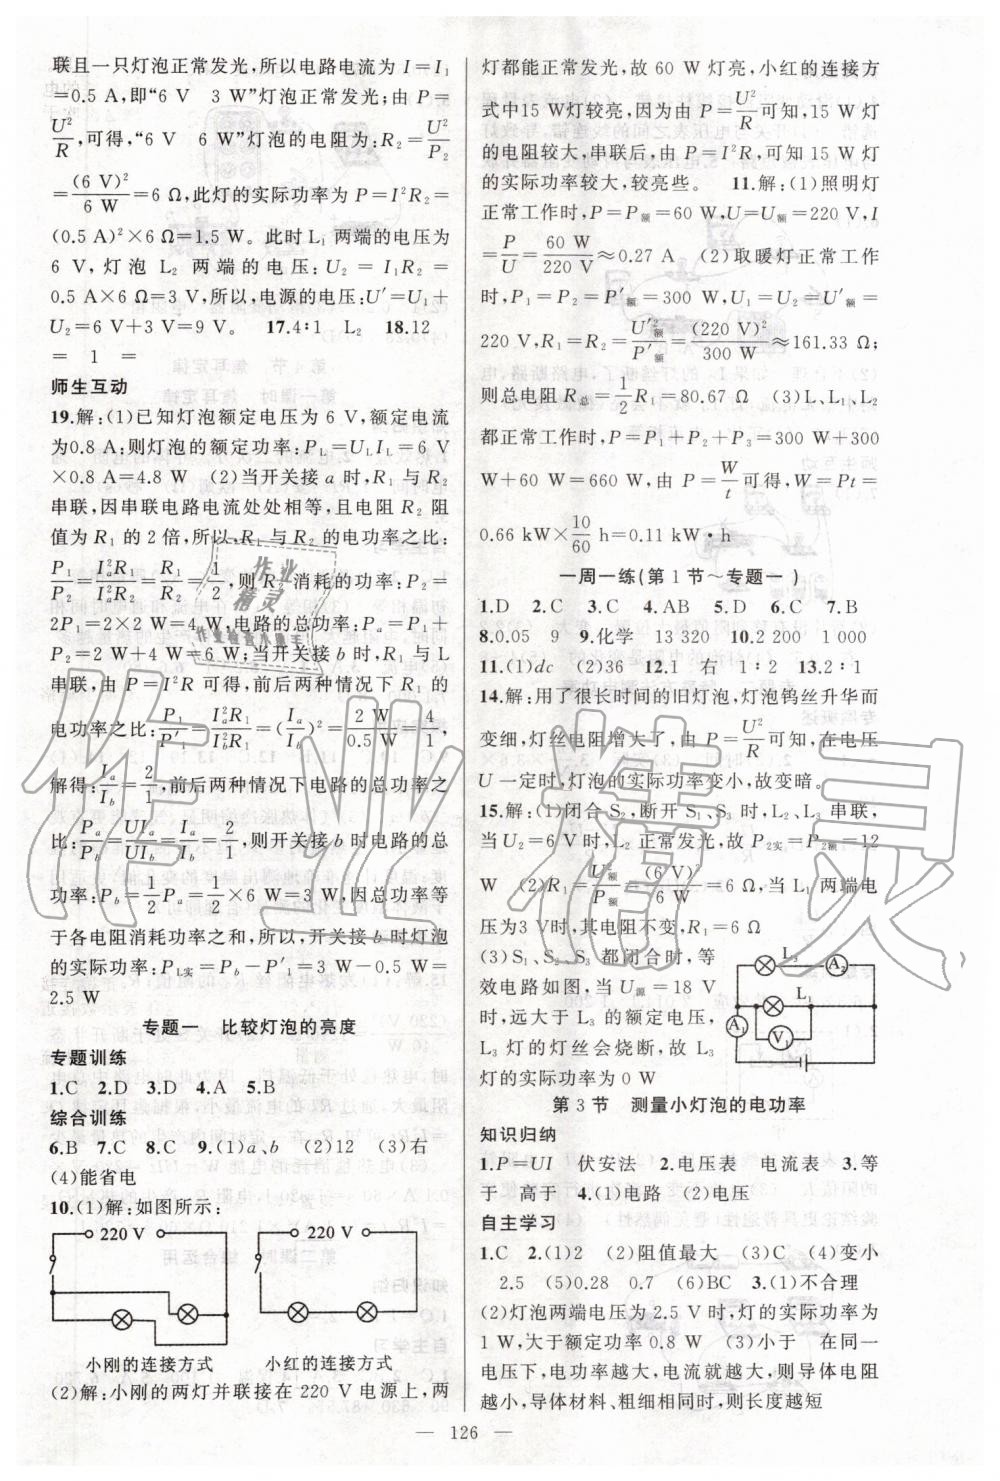 联且一只灯泡正常发光,所以电路电流为 I=I₁
=0.5 A,即“6 V 3 W”灯泡正常发光;由 P=
U²/R,可得,“6 V 6 W”灯泡的电阻为:R₂=U²/P₂
=(6 V)²/6 W=6 Ω,此灯的实际功率为 P=I²R₂=
(0.5 A)²×6 Ω=1.5 W。此时 L₁ 两端的电压为
6 V,灯泡 L₂ 两端的电压:U₂=I₁R₂=
0.5 A×6 Ω=3 V,所以,电源的电压:U′=U₁+
U₂=6 V+3 V=9 V。 17.4∶1 L₂ 18.12
= 1 =
师生互动
19.解:(1)已知灯泡额定电压为 6 V,额定电流
为0.8 A;则灯泡的额定功率:P_L=U_LI_L=6 V
×0.8 A=4.8 W (2)当开关接 a 时,R₁ 与 R₂
串联,因串联电路电流处处相等,且电阻 R₂ 阻
值为 R₁ 的 2 倍,所以,R₁ 与 R₂ 的电功率之比:
P₁/P₂=I²ₐR₁/I²ₐR₂=R₁/R₂=1/2,则 R₂ 消耗的功率:P₂=
2P₁=2×2 W=4 W,电路的总功率:Pₐ=P₁+
P₂=2 W+4 W=6 W;当开关接 b 时,R₁ 与 L
串联,由 P=I²R 可得,前后两种情况下 R₁ 的
电功率之比:P₁/P′₁=I²ₐR₁/I²_bR₁=(Iₐ/I_b)²=2 W/0.5 W=4/1,
解得:Iₐ/I_b=2/1,前后两种情况下电路的总功率之
比:Pₐ/P_b=UIₐ/UI_b=Iₐ/I_b=2/1,则开关接 b 时电路的总
功率:P_b=1/2Pₐ=1/2×6 W=3 W,因总功率等
于各电阻消耗功率之和,所以,开关接 b 时灯泡
的实际功率:P_L实=P_b-P′₁=3 W-0.5 W=
2.5 W
专题一 比较灯泡的亮度
专题训练
1.C 2.D 3.D 4.A 5.B
综合训练
6.B 7.C 8.C 9.(1)a、b (2)12 (3)右
(4)能省电
10.(1)解:如图所示:
220 V 220 V
小刚的连接方式 小红的连接方式
(2)解:小刚的两灯并联接在 220 V 电源上,两
灯都能正常发光,故 60 W 灯亮,小红的连接方
式中15 W灯较亮,因为由 P=U²/R可知,15 W 灯
的电阻较大,串联后,由 P=I²R,可知 15 W 灯
的实际功率较大,较亮些。 11.解:(1)照明灯
正常工作时,P=P额=60 W,U=U额=220 V,I
=P/U=60 W/220 V≈0.27 A (2)取暖灯正常工作
时,P₁=P₂=P′额=300 W,U₁=U₂=U′额=
220 V,R₁=R₂=U′²额/P′额=(220 V)²/300 W≈161.33 Ω;
则总电阻 R总=1/2R₁=80.67 Ω (3)L、L₁、L₂
都正常工作时,P=P₁+P₂+P₃=300 W+300
W+60 W=660 W,由 P=W/t可得,W=Pt=
0.66 kW×10/60 h=0.11 kW·h
一周一练(第 1 节～专题一)
1.D 2.C 3.C 4.AB 5.D 6.C 7.B
8.0.05 9 9.化学 13 320 10.2 200 1 000
11.(1)dc (2)36 12.1 右 1∶2 13.2∶1
14.解:用了很长时间的旧灯泡,灯泡钨丝升华而
变细,灯丝电阻增大了,由 P=U²/R可知,在电压
U 一定时,灯泡的实际功率变小,故变暗。
15.解:(1)闭合 S₂,断开 S₁、S₃ 时,L₂、L₃ 串联,
当 U₂=6 V 时,L₂ 正常发光,故 P₂实=P₂额=12
W (2)R₁=U²额/P额=(6 V)²/6 W=6 Ω,当 L₁ 两端电
压为3 V时,其电阻不变,R₁=6 Ω
(3)S₁、S₂、S₃ 都闭合时,等
效电路如图,当 U源=18 V
时,远大于 L₃ 的额定电压,
L₃ 灯的灯丝会烧断,故 L₃
灯的实际功率为 0 W
L₃
A₂
L₁
A₁
V₁
第 3 节 测量小灯泡的电功率
知识归纳
1.P=UI 伏安法 2.电压表 电流表 3.等
于 高于 4.(1)电路 (2)电压
自主学习
1.C 2.(1)2 (2)阻值最大 (3)C (4)变小
2.5 (5)0.28 0.7 (6)BC 3.(1)不合理
(2)灯泡两端电压为 2.5 V 时,灯的实际功率为
1 W,大于额定功率 0.8 W (3)小于 在同一
电压下,电功率越大,电流就越大,则导体电阻
越小,导体材料、粗细相同时,则长度越短
— 126 —
作业精灵
作业精灵
作业检查小能手